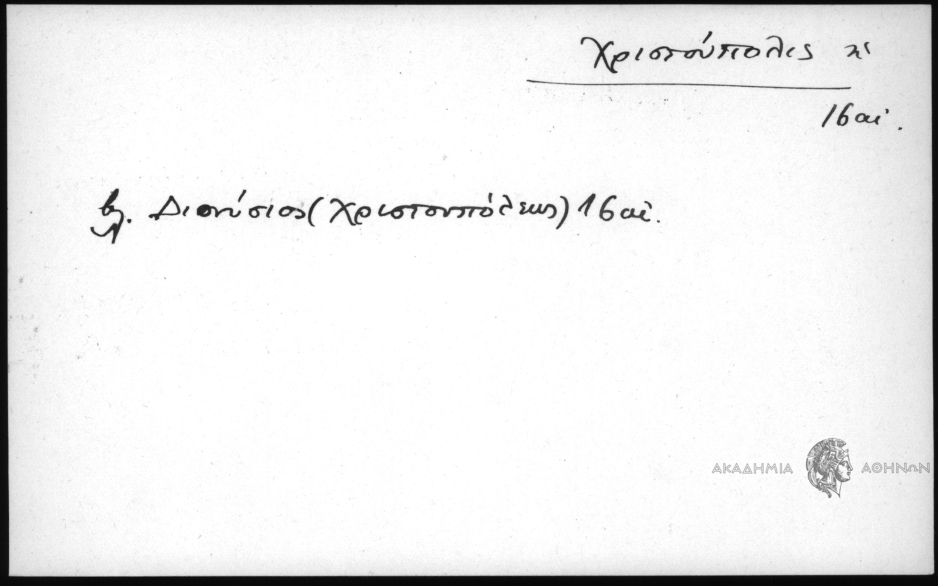 Χριστούπολις
16 αἰ.
βλ. Διονύσιος (Χριστουπόλεως) 16 αἰ.
ΑΚΑΔΗΜΙΑ ΑΘΗΝΩΝ